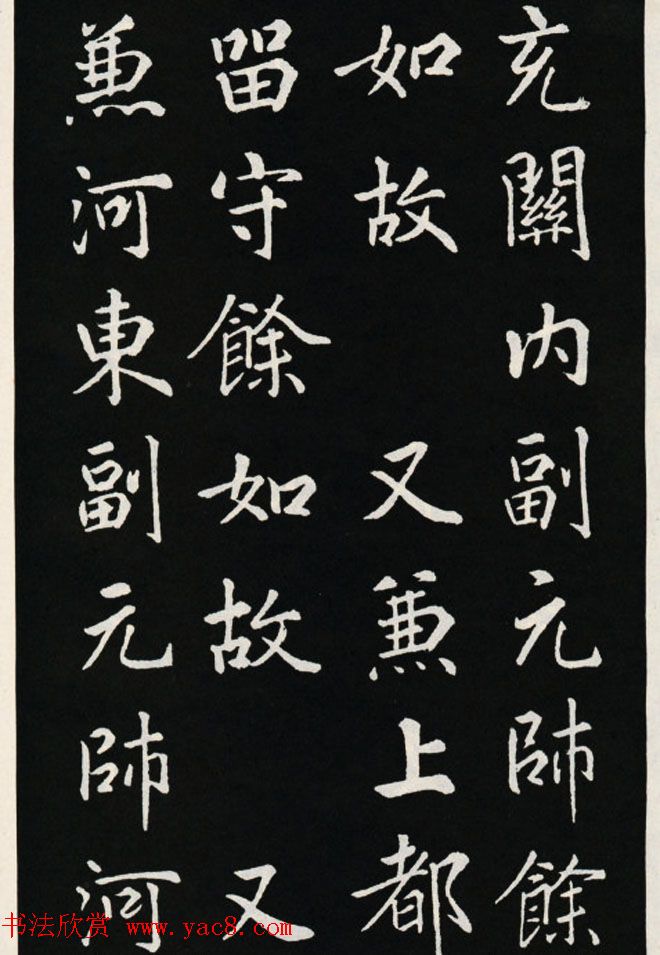 充關內副元師餘
如故 又兼上都
留守餘如故 又
兼河東副元師河
书法欣赏 www.yac8.com